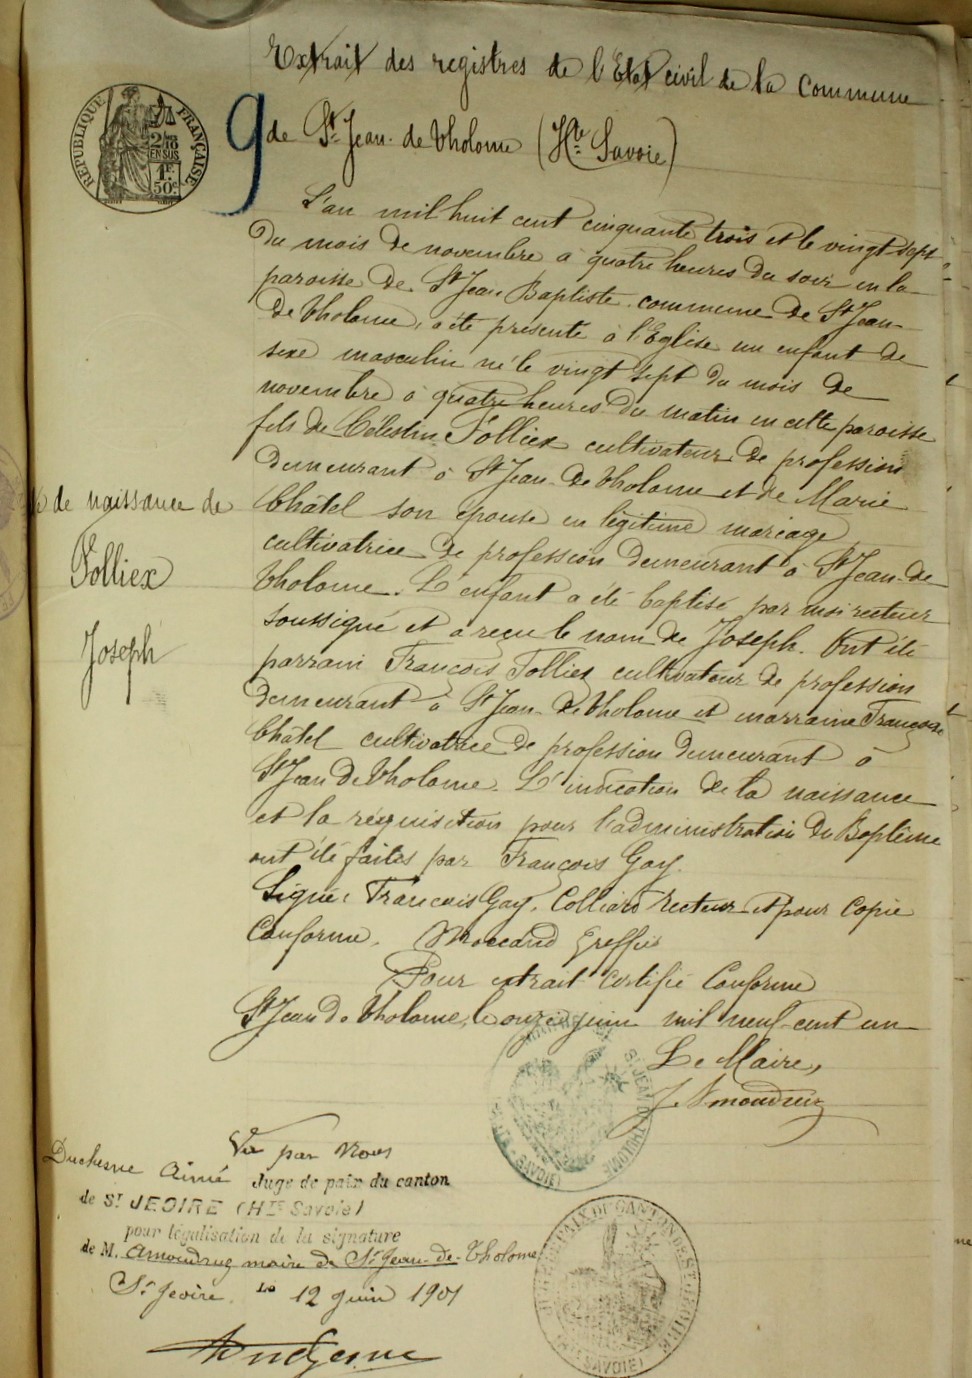 Extrait des registres de l'Etat civil de la Commune
de St Jean-de Tholome (Hte Savoie)
9
REPUBLIQUE FRANÇAISE
2/10
EN SUS
1F.
50c
L'an mil huit cent cinquante trois et le vingt-sept
du mois de novembre à quatre heures du soir en la
paroisse de St Jean Baptiste commune de St Jean
de Tholome, a été présenté à l'Eglise un enfant de
sexe masculin né le vingt sept du mois de
novembre à quatre heures du matin en cette paroisse
fils de Célestin Folliex cultivateur de profession
demeurant à St Jean-de Tholome et de Marie
Châtel son épouse en légitime mariage
cultivatrice de profession demeurant à St Jean-de
Tholome. L'enfant a été baptisé par moi recteur
soussigné et a reçu le nom de Joseph. Ont été
parrain François Folliex cultivateur de profession
demeurant à St Jean-de Tholome et marraine Françoise
Châtel cultivatrice de profession demeurant à
St Jean de Tholome. L'indication de la naissance
et la réquisition pour l'administration du Baptême
ont été faites par François Gay.
Signé: François Gay. Colliard recteur et pour Copie
Conforme. Moccand Greffier
Pour extrait certifié Conforme
St Jean de Tholome, le onze juin mil neuf-cent un
Le Maire,
J. Amoudruz
de naissance de
Folliex
Joseph
ST JEAN DE THOLOME
SAVOIE
Vu par Nous
Duchesne Aimé Juge de paix du canton
de ST JEOIRE (HTE Savoie)
pour légalisation de la signature
de M. Amoudruz maire de St Jean-de-Tholome
St Jeoire. Le 12 juin 1901
Duchesne
PAIX DU CANTON DE ST JEOIRE
SAVOIE